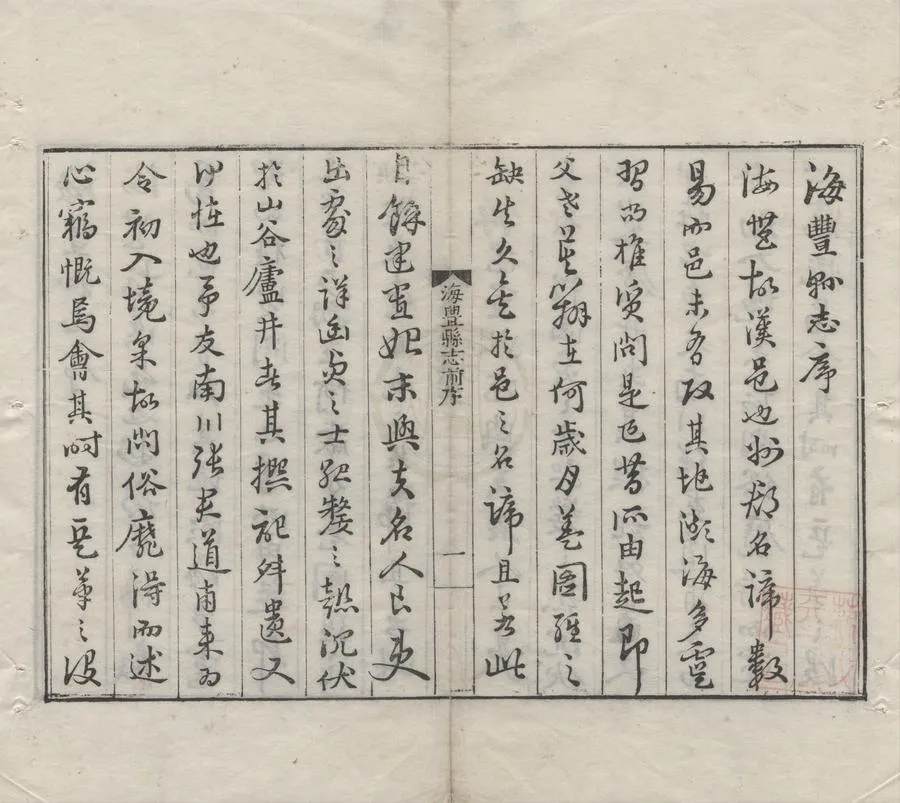 海豐縣志序
海豐故漢邑也州郡名諦數
易而邑未有改其地瀕海多靈
習尚椎質問是邑昔所由起即
父老莫辯在何歲月蓋圖經之
缺失久矣於邑之名諦且若此
海豐縣志前序
一
自餘建置始末與夫名人良吏
出處之詳幽貞之士烈嫠之懿沉伏
於山谷廬井者其撰記舛遺又
何怪也予友南川張君道甫來為
令初入境采故問俗龐得而述
心竊慨焉會其時有兵革之役